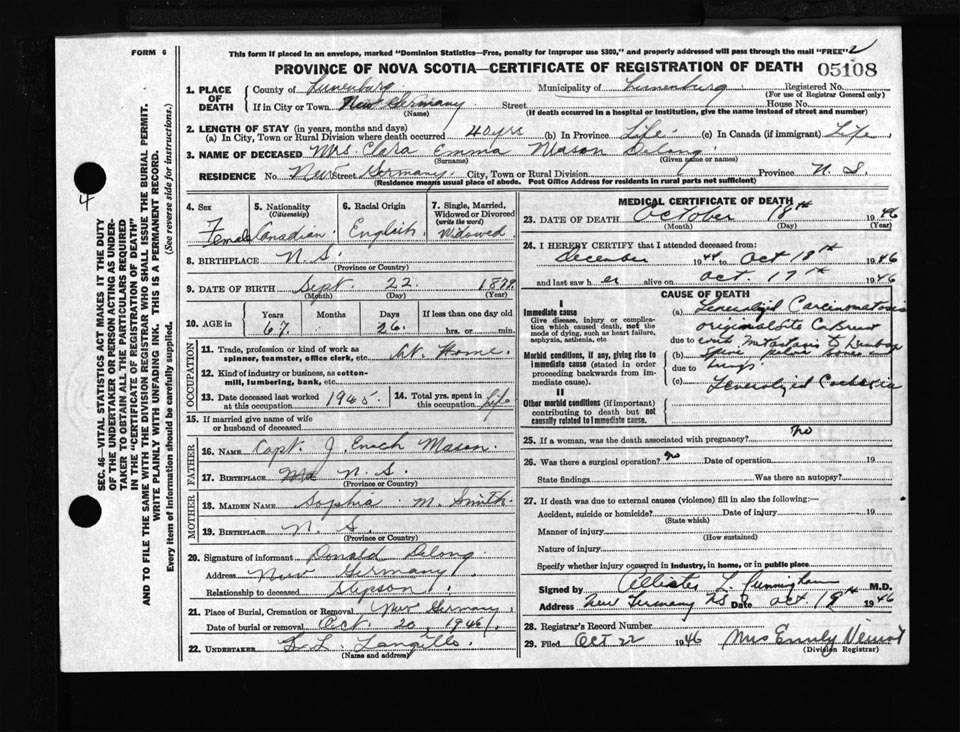 FORM 6
This form if placed in an envelope, marked "Dominion Statistics—Free, penalty for improper use $300," and properly addressed will pass through the mail "FREE"
PROVINCE OF NOVA SCOTIA—CERTIFICATE OF REGISTRATION OF DEATH 05108
1. PLACE OF DEATH
County of Lunenburg Municipality of Lunenburg Registered No.
(For use of Registrar General only)
If in City or Town New Germany Street House No.
(Name) (If death occurred in a hospital or institution, give the name instead of street and number)
2. LENGTH OF STAY (in years, months and days)
(a) In City, Town or Rural Division where death occurred 40 yrs (b) In Province Life (c) In Canada (if immigrant) Life
3. NAME OF DECEASED Mrs. Clara Emma Mason Delong
(Surname) (Given name or names)
RESIDENCE No. New Street Germany City, Town or Rural Division Province N. S.
(Residence means usual place of abode. Post Office Address for residents in rural parts not sufficient)
4. Sex Female
5. Nationality (Citizenship) Canadian
6. Racial Origin English
7. Single, Married, Widowed or Divorced (write the word) Widowed
8. BIRTHPLACE N. S.
(Province or Country)
9. DATE OF BIRTH Sept. 22 1879
(Month) (Day) (Year)
10. AGE in Years 67 Months Days 26 If less than one day old hrs. or min.
OCCUPATION
11. Trade, profession or kind of work as spinner, teamster, office clerk, etc. At Home.
12. Kind of industry or business, as cotton-mill, lumbering, bank, etc.
13. Date deceased last worked at this occupation 1945.
14. Total yrs. spent in this occupation Life
15. If married give name of wife or husband of deceased
FATHER
16. NAME Capt. J. Enoch Mason
17. BIRTHPLACE N. S.
(Province or Country)
MOTHER
18. MAIDEN NAME Sophia M. Smith
19. BIRTHPLACE N. S.
(Province or Country)
20. Signature of informant Donald Delong
Address New Germany
Relationship to deceased Stepson
21. Place of Burial, Cremation or Removal New Germany
Date of burial or removal Oct. 20, 1946
22. UNDERTAKER L. Langille
(Name and address)
MEDICAL CERTIFICATE OF DEATH
23. DATE OF DEATH October 18th 1946
(Month) (Day) (Year)
24. I HEREBY CERTIFY that I attended deceased from:
December 1944 to Oct 18th 1946
and last saw her alive on Oct. 17th 1946
CAUSE OF DEATH
I
Immediate cause
Give disease, injury or complication which caused death, not the mode of dying, such as heart failure, asphyxia, asthenia, etc.
(a) Generalized Carcinomatosis
original site Ca Breast
due to with Metastasis to Lumbar
Morbid conditions, if any, giving rise to immediate cause (stated in order proceeding backwards from immediate cause).
(b) Spine
due to lungs
(c) Generalized Cachexia
II
Other morbid conditions (if important) contributing to death but not causally related to immediate cause.
25. If a woman, was the death associated with pregnancy? no
26. Was there a surgical operation? no Date of operation 19
State findings Was there an autopsy?
27. If death was due to external causes (violence) fill in also the following:—
Accident, suicide or homicide? Date of injury 19
(State which)
Manner of injury
(How sustained)
Nature of injury
Specify whether injury occurred in industry, in home, or in public place
Signed by Allister L. Cunningham M.D.
Address New Germany NS Date Oct. 18th 1946
28. Registrar's Record Number
29. Filed Oct 22 1946 Mrs Emily
(Division Registrar)
SEC. 46—VITAL STATISTICS ACT MAKES IT THE DUTY
OF THE UNDERTAKER OR PERSON ACTING AS UNDER-
TAKER TO OBTAIN ALL THE PARTICULARS REQUIRED
IN THE "CERTIFICATE OF REGISTRATION OF DEATH"
AND TO FILE THE SAME WITH THE DIVISION REGISTRAR WHO SHALL ISSUE THE BURIAL PERMIT.
WRITE PLAINLY WITH UNFADING INK. THIS IS A PERMANENT RECORD.
Every item of information should be carefully supplied. (See reverse side for instructions.)
4